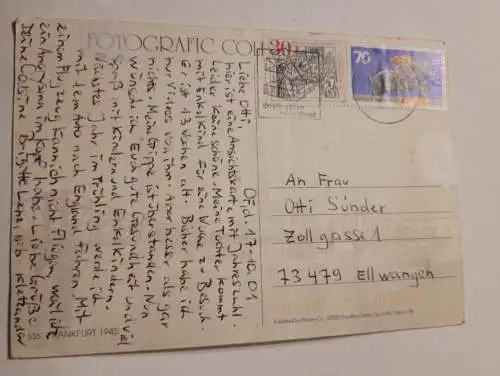 FOTOGRAFIC COLL
30
76
Briefe geben
Of, d. 17.10.01
Liebe Otti,
hier ist eine Ansichtskarte mit Jahreszahl.
Leider keine schöne. Meine Tochter kommt
mit Enkelkind für eine Woche zu Besuch.
Er ist 13 Wochen alt. Bisher habe ich
nur Videos von ihm. Aber besser als gar
nichts. Meine Grippe ist überstanden. Nun
wünsche ich Euch gute Gesundheit und viel
Spaß mit Kindern und Enkelkindern.
Nächstes Jahr im Frühling werde ich
mit dem Auto nach England fahren. Mit
einem Flugzeug kann ich nicht fliegen, weil ich
ein Angrysma im Kopf habe. Liebe Grüße
Deine Cousine Brigitte
An Frau
Otti Sünder
Zollgasse 1
73479 Ellwangen
535 FRANKFURT 1945